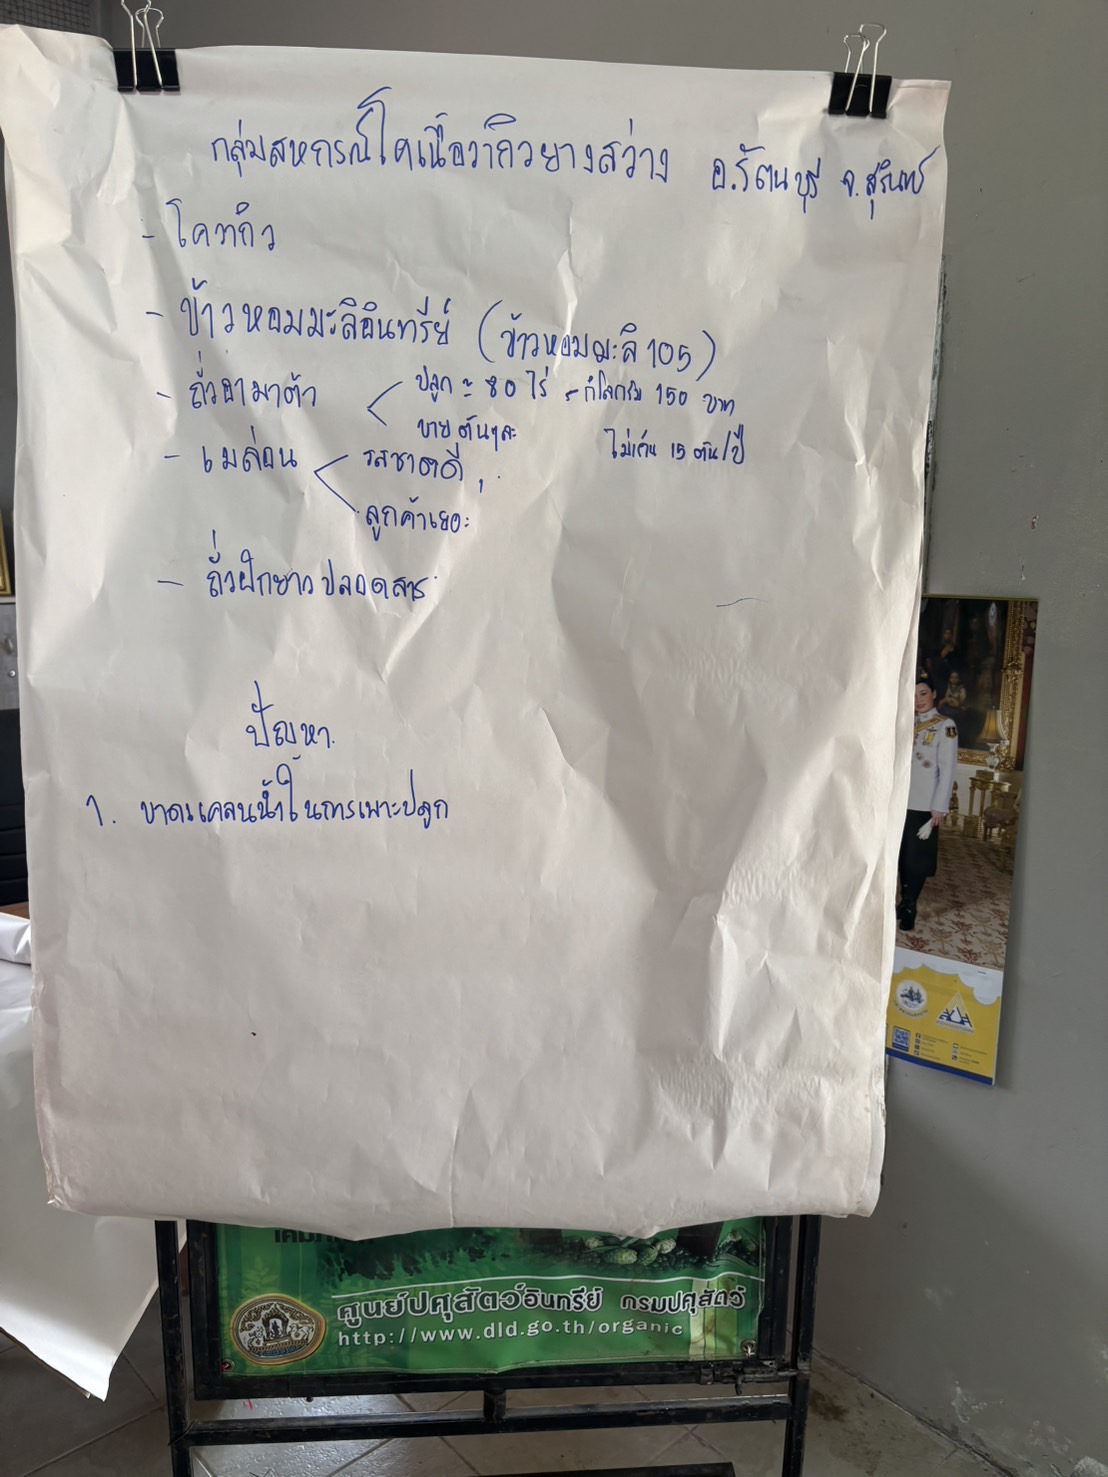 กลุ่มสหกรณ์โคเนื้อวากิวยางสว่าง อ.รัตนบุรี จ.สุรินทร์
- โควากิว
- ข้าวหอมมะลิอินทรีย์ (ข้าวหอมมะลิ 105)
- ถั่วดามาต้า
ปลูก = 80 ไร่ - กิโลกรัม 150 บาท
ขาย ต้นๆละ ไม่เกิน 15 ตัน/ปี
- เมล่อน
รสชาตดี
ลูกค้าเยอะ
- ถั่วฝักยาวปลอดสาร
ปัญหา
1. ขาดแคลนน้ำในการเพาะปลูก
ศูนย์ปศุสัตว์อินทรีย์ กรมปศุสัตว์
http://www.dld.go.th/organic